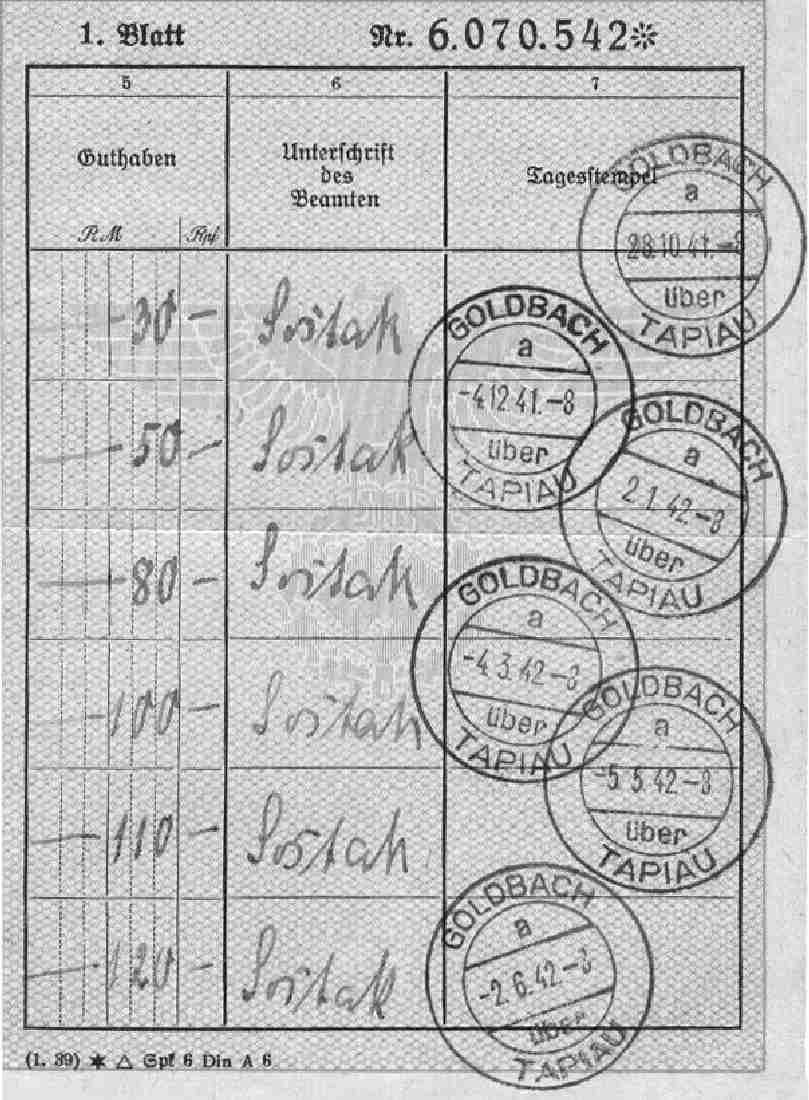 1. Blatt Nr. 6.070.542*
5 6 7
Guthaben Unterschrift des Beamten Tagesstempel
RM Rpf
GOLDBACH
a
28.10.41.-8
über
TAPIAU
30 - Sostak
GOLDBACH
a
-4.12.41.-8
über
TAPIAU
50 - Sostak
GOLDBACH
a
2.1.42-8
über
TAPIAU
80 - Sostak
GOLDBACH
a
-4.3.42-8
über
TAPIAU
100 - Sostak
GOLDBACH
a
-5.5.42-8
über
TAPIAU
110 - Sostak
GOLDBACH
a
-2.6.42.-8
über
TAPIAU
120 - Sostak
(1. 39) ✶ △ Spf 6 Din A 6